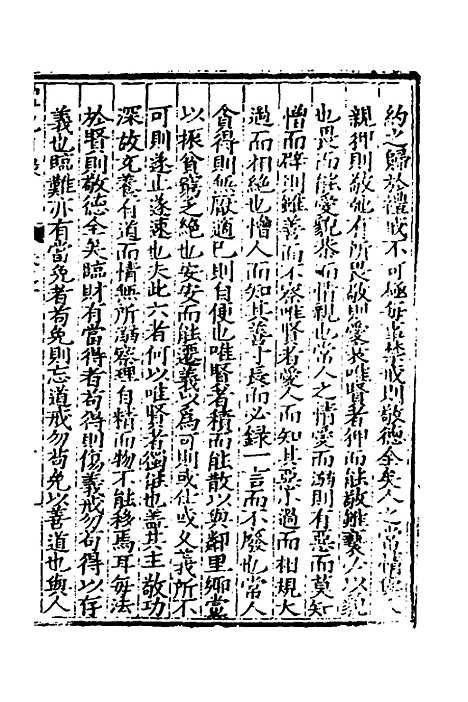 約之歸於禮戒不可極每事禁戒則敬德全矣人之常情與人
親狎則敬弛有所畏敬則愛衰唯賢者狎而能敬雖褻必以貌
也畏而能愛貌恭而情親也常人之情愛而溺則有惡而莫知
憎而辟則雖善而不察唯賢者愛人而知其惡小過而相規大
過而相絶也憎人而知其善寸長而必録一言而不廢也常人
貪得則無厭適已則自便也唯賢者積而能散以與鄰里鄉黨
以振貧窮乏絶也安安而能遷義以爲可則或仕或久義所不
可則遂止遂速也夫此六者何以唯賢者獨能也蓋其主敬功
深故充養有道而情無所溺察理自精而物不能移焉耳毎法
於賢則敬德全矣臨財有當得者苟得則傷義戒勿苟得以存
義也臨難亦有當免者苟免則忘道戒勿苟免以善道也與人